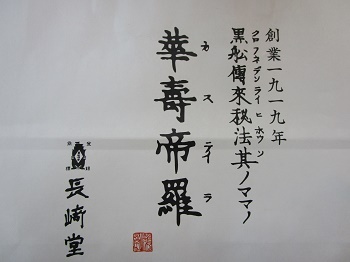 創業一九一九年
クロフネデンライヒホウソ
黒舩傳來秘法其ノママノ
カステイラ
華壽帝羅
長﨑堂